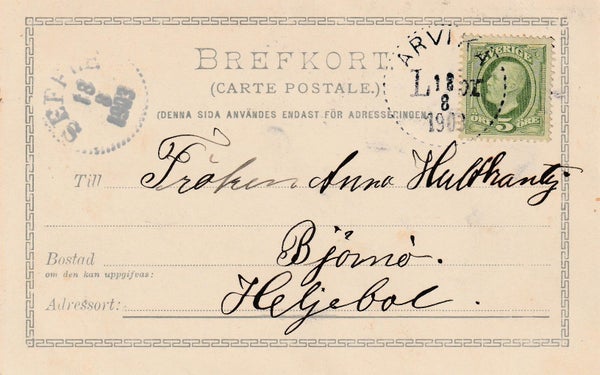 BREFKORT
(CARTE POSTALE.)
(DENNA SIDA ANVÄNDES ENDAST FÖR ADRESSERINGEN
SEFFLE
18
8
1903
ARVIKA
18
8
1903
SVERIGE
ÖRE 5 ÖRE
Till Fröken Anna Hultkrantz
Bostad Björnö.
om den kan uppgifvas:
Adressort: Heljebol.